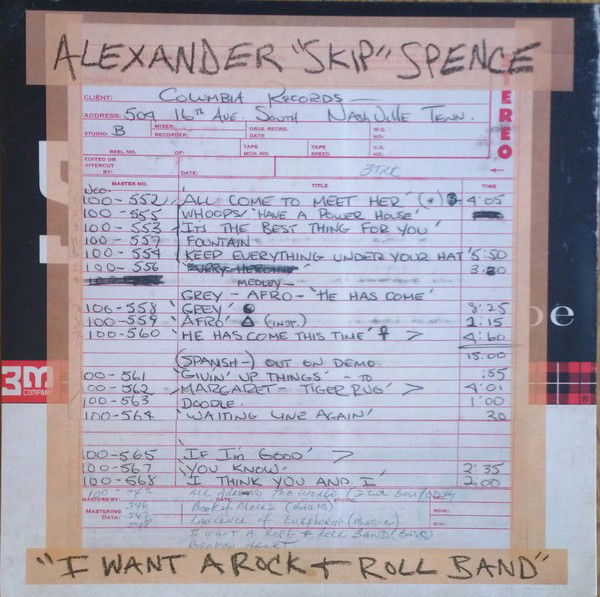 ALEXANDER "SKIP" SPENCE
CLIENT: COLUMBIA RECORDS —
ADDRESS: 504 16TH AVE. SOUTH NASHVILLE TENN.
STEREO
STUDIO: B MIXER: RECORDER: ORIG. RECRD. DATE: W.O. NO.
REEL NO. OF: TAPE MCH. NO. TAPE SPEED C.O. NO.
EDITED OR INTERCUT BY: DATE: 3TRK
MASTER NO. TITLE TIME
NCO-
100-552 'ALL COME TO MEET HER' (*) 4:05
100-555 'WHOOPS' HAVE A POWER HOUSE'
100-553 'ITS THE BEST THING FOR YOU'
100-557 'FOUNTAIN
100-554 'KEEP EVERYTHING UNDER YOUR HAT' 5:50
100-556
MEDLEY—
'GREY - AFRO - 'HE HAS COME'
100-558 'GREY' 8:25
100-559 'AFRO' △ (INST.) 2:15
100-560 'HE HAS COME THIS TIME' > 4:60
(SPANISH-) OUT ON DEMO. 15:00
100-561 'GIVIN' UP THINGS' - TO :55
100-562 'MARGARET - TIGER RUG' > 4:01
100-563 DOODLE. 1:00
100-564 'WAITING LINE AGAIN' 30
100-565 'IF I'M GOOD' >
100-567 'YOU KNOW' 2:35
100-568 'I THINK YOU AND I' 2:00
MASTERED BY: DATE: STUDIO:
Mastering Data:
I WANT A ROCK & ROLL BAND (BASIC)
BROKEN HEART
3M
COMPANY
oe
"I WANT A ROCK + ROLL BAND"